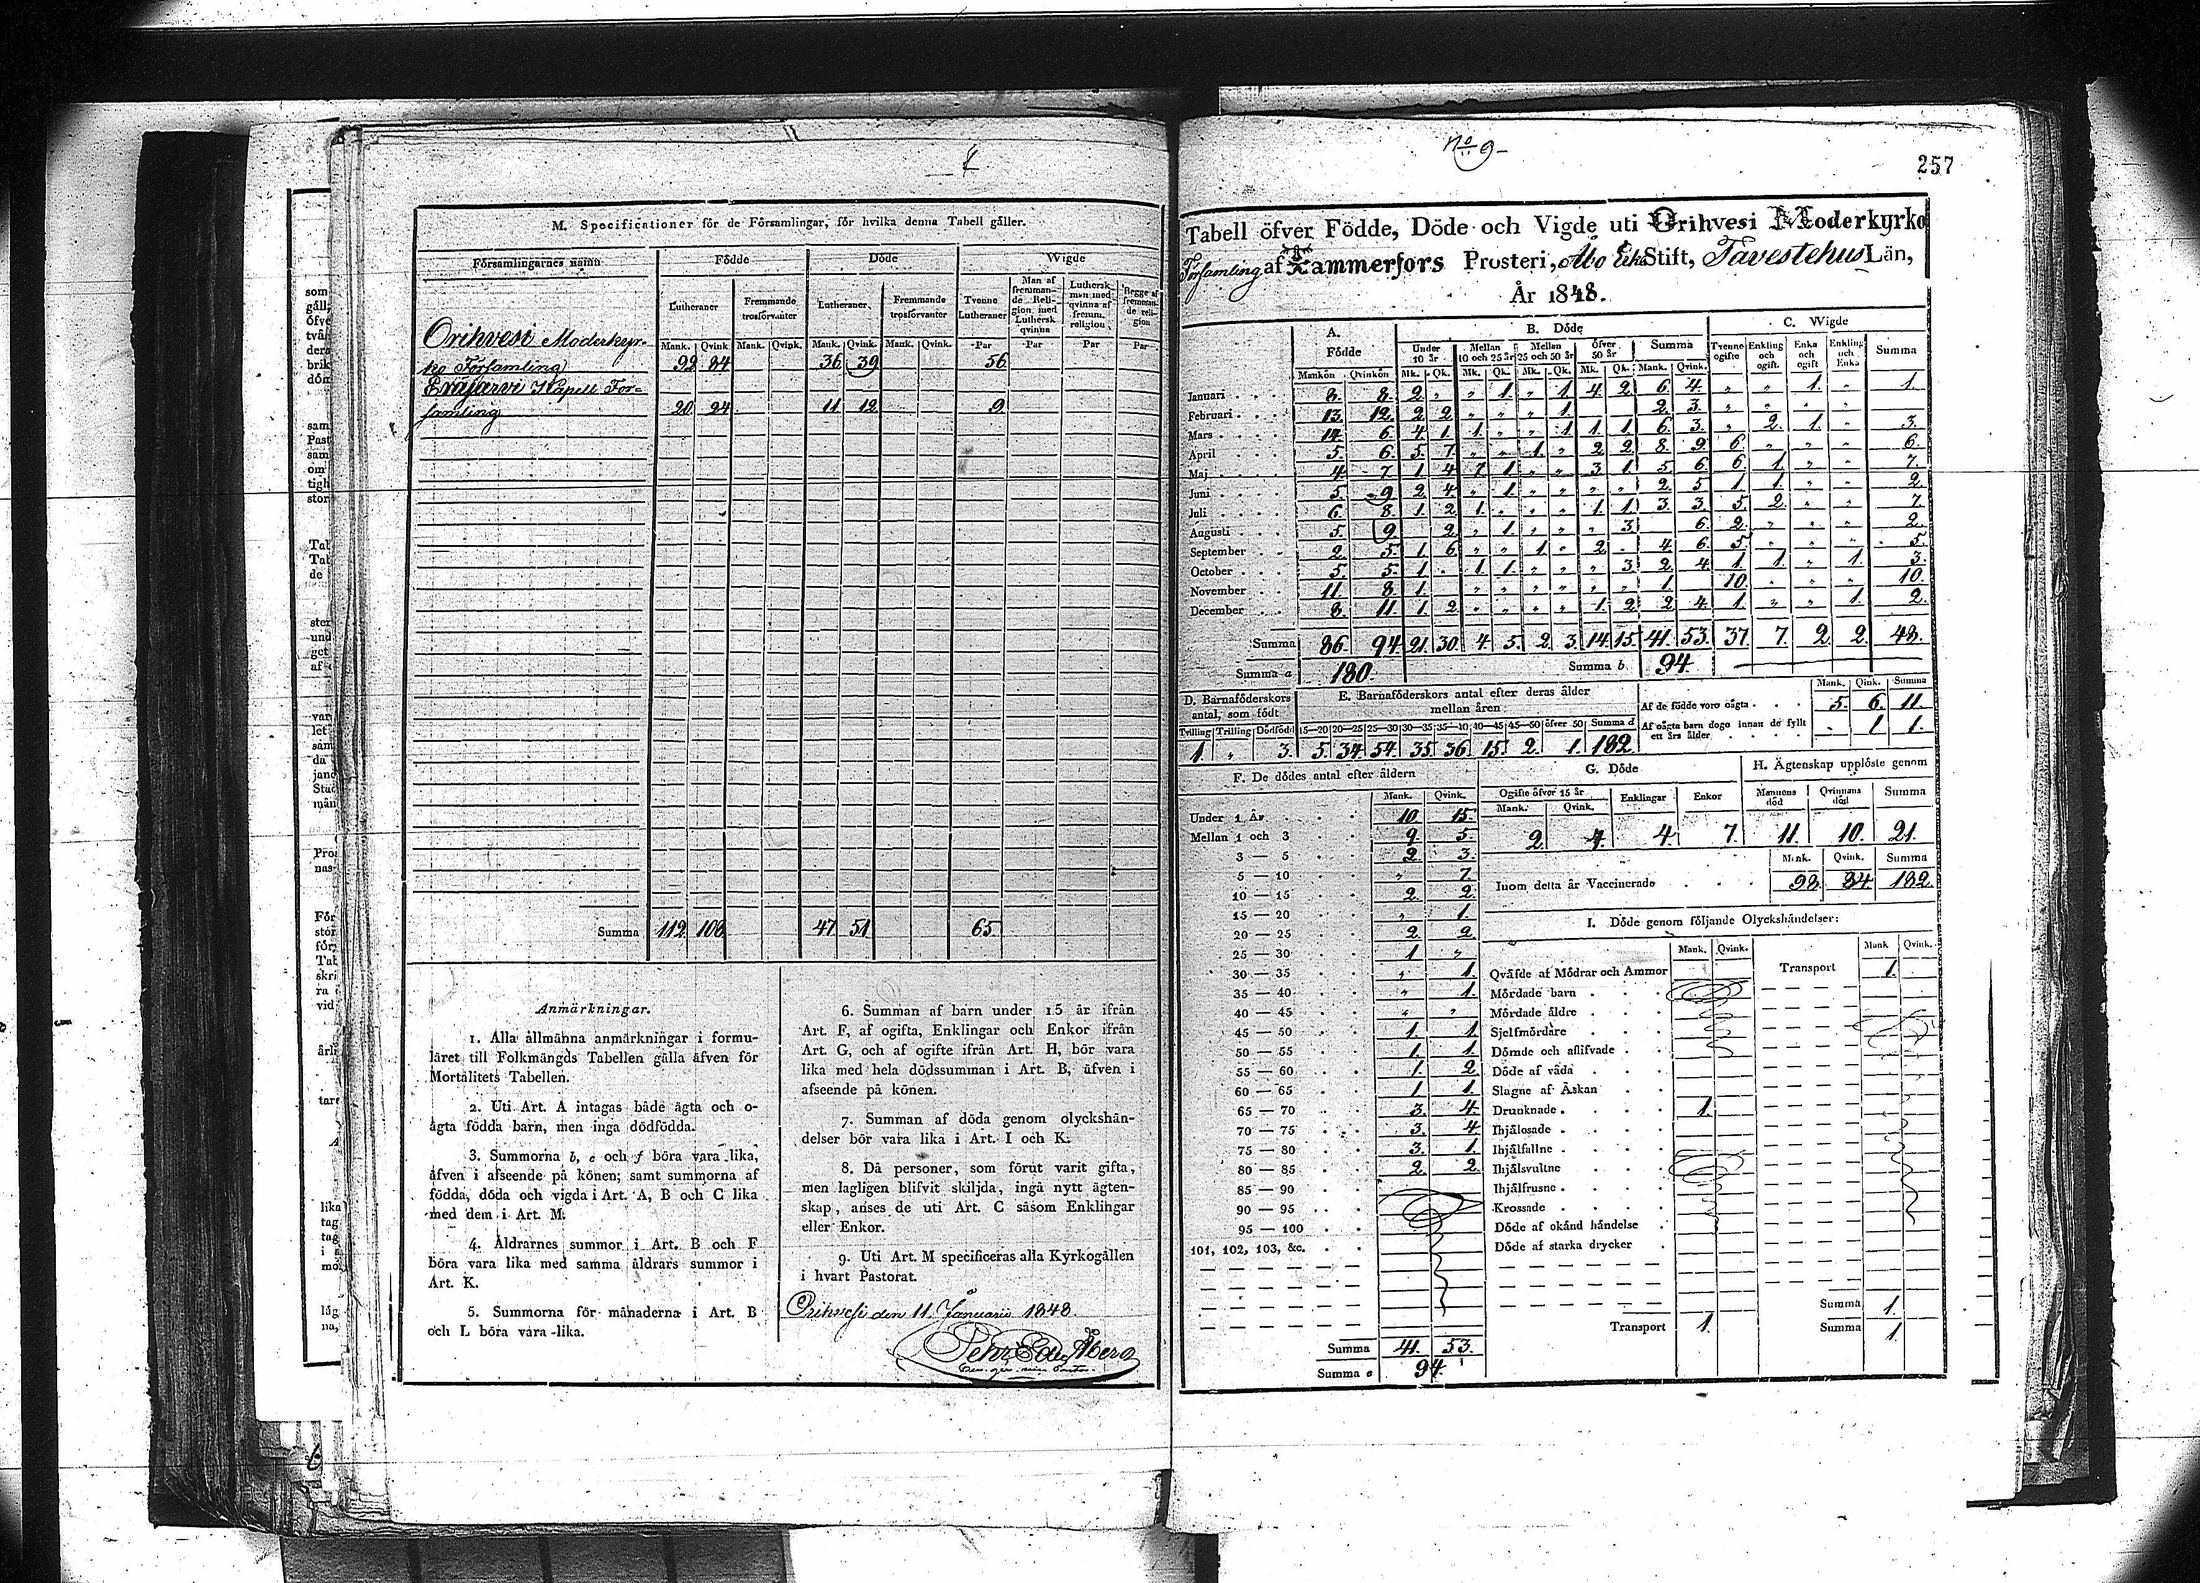 M. Specificationer för de Församlingar, för hvilka denna Tabell gäller.
Församlingarnes namn Födde Döde Wigde
Lutheraner Fremmande trosförvanter Lutheraner Fremmande trosförvanter Tvenne Lutheraner Man af fremmande Religion med Luthersk qvinna Luthersk man med qvinna af fremm. religion Begge af fremmande religion
Mank. Qvink. Mank. Qvink. Mank. Qvink. Mank. Qvink. Par Par Par Par
Orihvesi Moderkyr-
ko Församling 92 84 36 39 56
Eräjärvi Kapell För-
samling 20 24 11 12 9
Summa 112 108 47 51 65
Anmärkningar.
1. Alla allmänna anmärkningar i formu-
läret till Folkmängds Tabellen gälla äfven för
Mortalitets Tabellen.
2. Uti Art. A intagas både ägta och o-
ägta födda barn, men inga dödfödda.
3. Summorna b, e och f böra vara lika,
äfven i afseende på könen; samt summorna af
födda, döda och vigda i Art. A, B och C lika
med dem i Art. M.
4. Åldrarnes summor i Art. B och F
böra vara lika med samma åldrars summor i
Art. K.
5. Summorna för månaderna i Art. B
och L böra vara lika.
6. Summan af barn under 15 år ifrån
Art. F, af ogifta, Enklingar och Enkor ifrån
Art. G, och af ogifte ifrån Art. H, bör vara
lika med hela dödssumman i Art. B, äfven i
afseende på könen.
7. Summan af döda genom olyckshän-
delser bör vara lika i Art. I och K.
8. Då personer, som förut varit gifta,
men lagligen blifvit skiljda, ingå nytt ägten-
skap, anses de uti Art. C såsom Enklingar
eller Enkor.
9. Uti Art. M specificeras alla Kyrkogällen
i hvart Pastorat.
Orihvesi den 11 Januarii 1848.
Pehr Edv Åberg
No 9
257
Tabell öfver Födde, Döde och Vigde uti Orihvesi Moderkyrko
Församling af Tammerfors Prosteri, Åbo Erke Stift, Tavestehus Län,
År 1848.
A. Födde B. Döde C. Wigde
Under 10 år Mellan 10 och 25 år Mellan 25 och 50 år Öfver 50 år Summa Tvenne ogifte Enkling och ogift Enka och ogift Enkling och Enka Summa
Mankön Qvinkön Mk. Qk. Mk. Qk. Mk. Qk. Mk. Qk. Mank. Qvink.
Januari 8. 8. 2. „ „ 1. „ 1. 4. 2. 6. 4. „ „ 1. „ 1.
Februari 13. 12. 2. 2. „ „ „ 1. 2. 3. „ „ „ „
Mars 14. 6. 4. 1. 1. „ „ 1. 1. 1. 6. 3. „ 2. 1. „ 3.
April 5. 6. 5. 7. „ „ 1. „ 2. 2. 8. 9. 6. „ „ „ 6.
Maj 4. 7. 1. 4. 1. 1. „ „ 3. 1. 5. 6. 6. 1. „ „ 7.
Juni 5. 9. 2. 4. „ 1. „ „ „ „ 2. 5. 1. 1. „ „ 2.
Juli 6. 8. 1. 2. 1. „ „ „ 1. 1. 3. 3. 5. 2. „ „ 7.
Augusti 5. 9. 2. „ 1. „ „ „ 3. 6. 2. „ „ „ 2.
September 2. 5. 1. 6. „ „ 1. „ 2. 4. 6. 5. „ „ „ 5.
October 5. 5. 1. „ 1. 1. „ „ „ 3. 2. 4. 1. 1. „ 1. 3.
November 11. 8. 1. „ „ „ „ „ „ 1. 10. „ „ „ 10.
December 8. 11. 1. 2. „ „ „ „ 1. 2. 2. 4. 1. „ „ 1. 2.
Summa 86. 94. 21. 30. 4. 5. 2. 3. 14. 15. 41. 53. 37. 7. 2. 2. 48.
Summa a 180. Summa b. 94.
D. Barnaföderskors antal, som födt
Tvilling Trilling Dödfödd
1. „ 3.
E. Barnaföderskors antal efter deras ålder mellan åren
15—20 20—25 25—30 30—35 35—40 40—45 45—50 öfver 50 Summa d
5. 34. 54. 35. 36. 15. 2. 1. 182
Mank. Qvink. Summa
Af de födde voro oägta 5. 6. 11.
Af oägta barn dogo innan de fyllt ett års ålder 1 1.
F. De dödes antal efter åldern
Mank. Qvink.
Under 1 År 10. 15.
Mellan 1 och 3 9. 5.
3 — 5 2. 3.
5 — 10 „ 7.
10 — 15 2. 2.
15 — 20 „ 1.
20 — 25 2. 2.
25 — 30 1. „
30 — 35 „ 1.
35 — 40 „ 1.
40 — 45 „ „
45 — 50 1. 1.
50 — 55 1. 1.
55 — 60 1. 2.
60 — 65 1. 1.
65 — 70 3. 4.
70 — 75 3. 4.
75 — 80 3. 1.
80 — 85 2. 2.
85 — 90
90 — 95
95 — 100
101, 102, 103, &c.
Summa 41. 53.
Summa e 94.
G. Döde
Ogifte öfver 15 år Enklingar Enkor
Mank. Qvink.
2. 4. 4. 7.
H. Ägtenskap upplöste genom
Mannens död Qvinnans död Summa
11. 10. 21.
Mank. Qvink. Summa
Inom detta år Vaccinerade 98. 84. 182.
I. Döde genom följande Olyckshändelser:
Mank. Qvink. Mank. Qvink.
Qväfde af Mödrar och Ammor Transport 1.
Mördade barn
Mördade äldre
Sjelfmördare
Dömde och aflifvade
Döde af våda
Slagne af Åskan
Drunknade 1.
Ihjälosade
Ihjälfallne
Ihjälsvultne
Ihjälfrusne
Krossade
Döde af okänd händelse
Döde af starka drycker
Summa 1.
Transport 1. Summa 1.